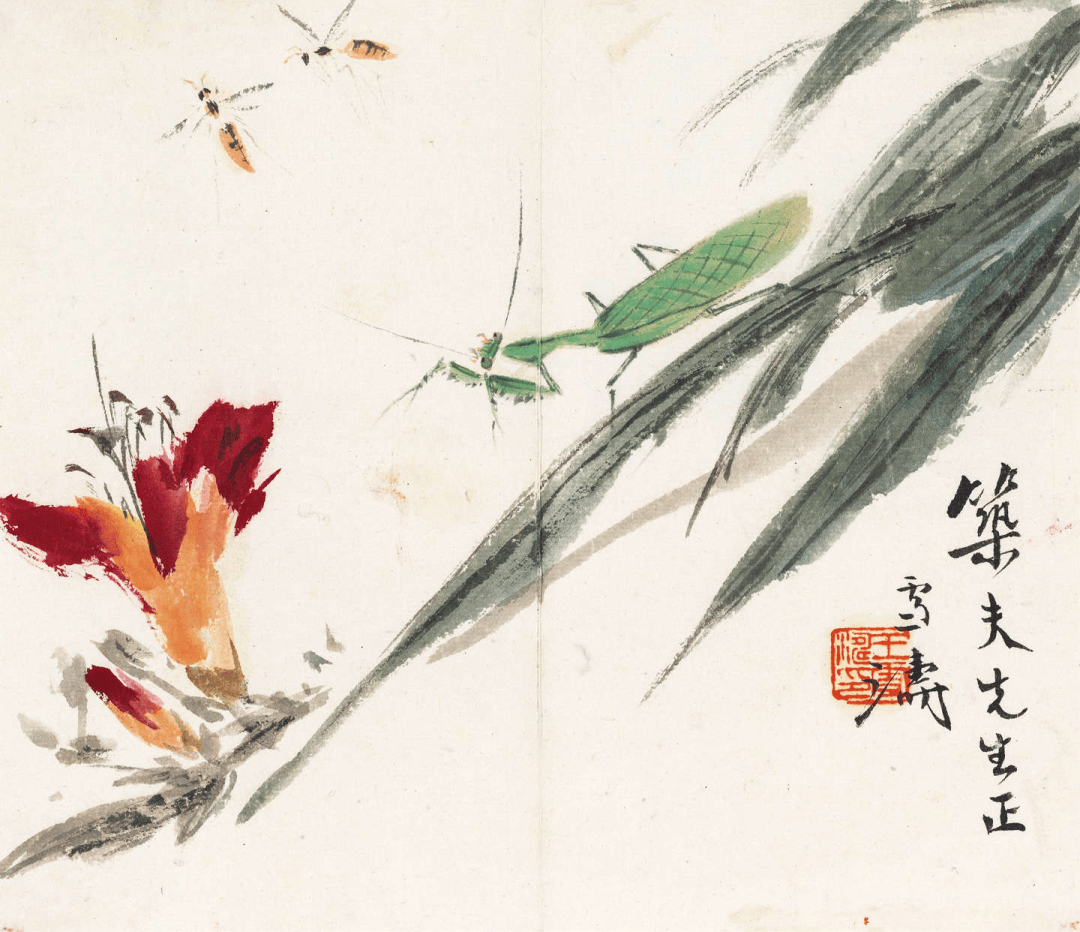 築夫先生正
雪濤
王雪濤印